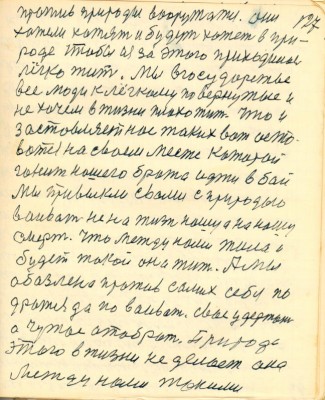 против природы вооружати. они 127
хотели хотят и будут хотет в при-
роде чтобы из за этого приходилос
лёгко жит. Мы в государстве
все люди к лёгкому повернутые и
не хочем в жизни плохо жит. что и
заставляет нас таких вот оста-
ватся на своем месте которой
гонит нашего брата идти в бой
мы привыкли своми с природою
ваиват не на жизн нашу а на нашу
смерт. что между нами жила и
будет такой она жит. А мы
обазлена против самих себе по
дражя да по ваиват. свае удержат
а чужое атобрат. Природа
этого в жизни не делает она
между нами такими